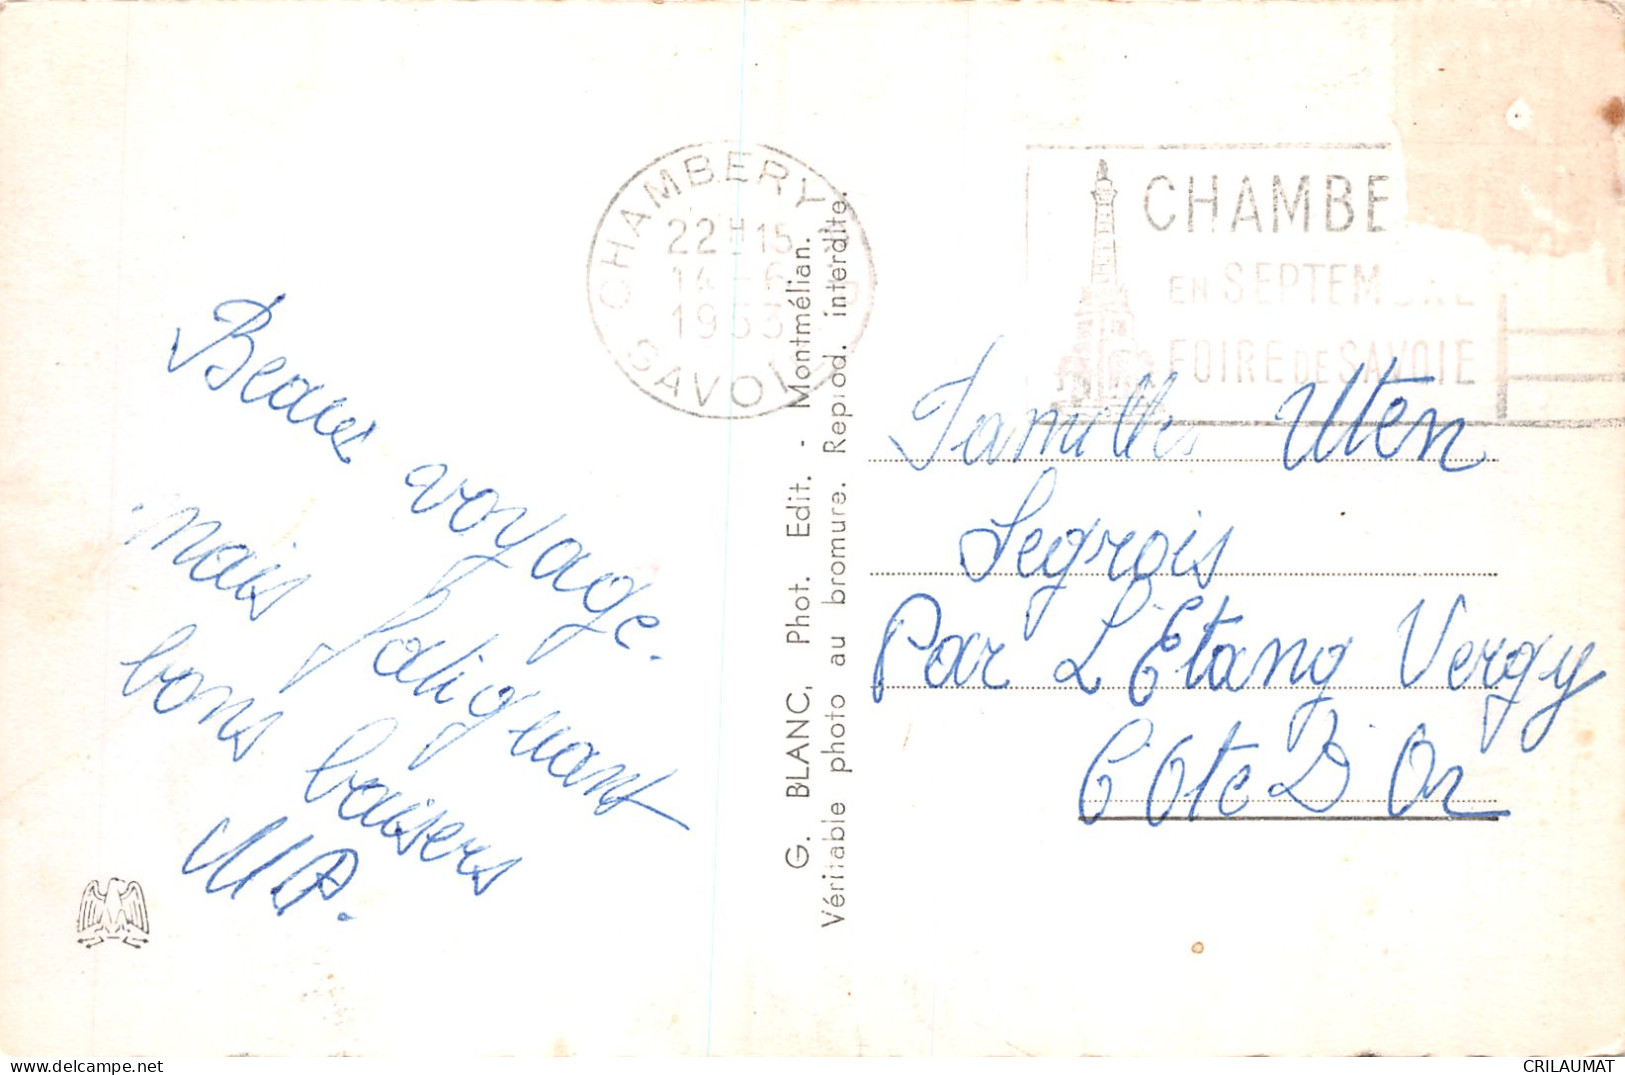 Beau voyage.
mais fatiguant
bons baisers
MP.
G. BLANC, Phot. Edit. - Montmélian.
Véritable photo au bromure. Reprod. interdite.
CHAMBERY R.P
22H15
1953
SAVOIE
CHAMBE
EN SEPTEMBRE
FOIRE DE SAVOIE
Famille Uten
Segrois
Par L'Etang Vergy
Côte D'Or
CRILAUMAT